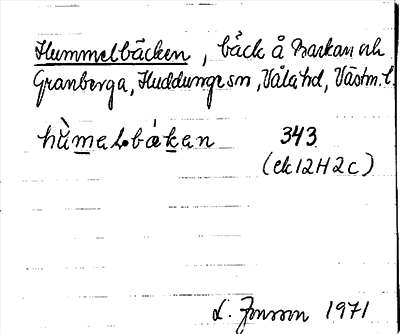 Hummelbäcken, bäck å Barkan och
Granberga, Huddunge sn, Våla hd, Västm. l.
hùmeḷbä́ken 343
(ek 12H2c)
L. Jonsson 1971